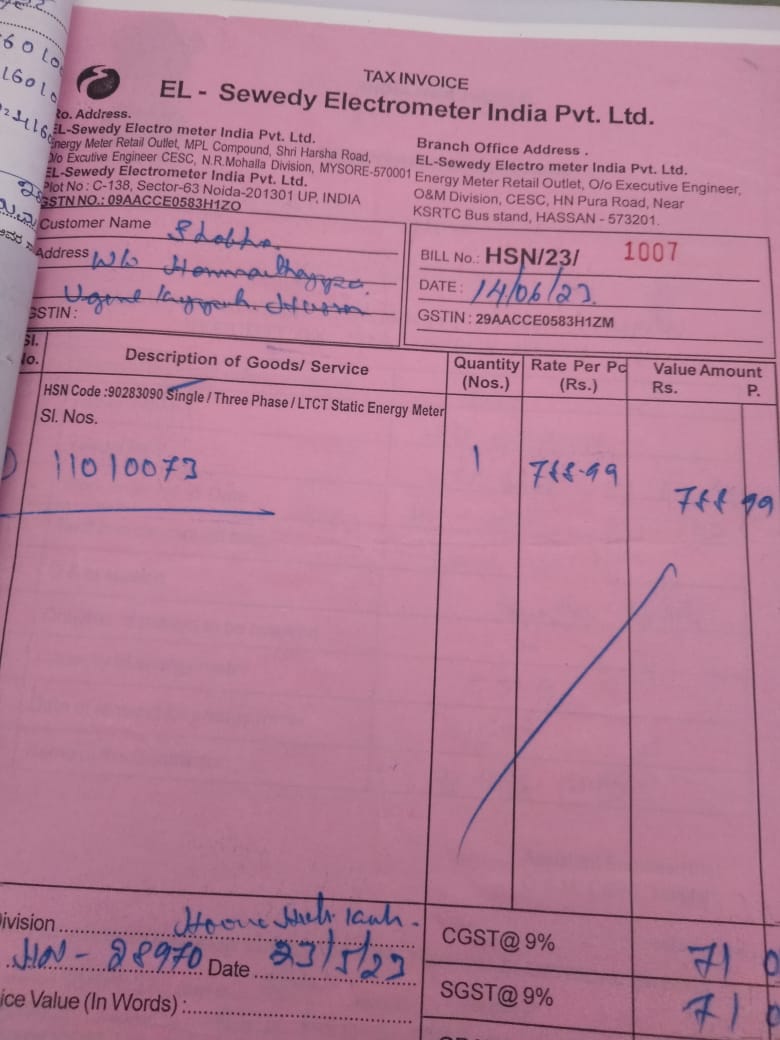 60100
16010
TAX INVOICE
EL - Sewedy Electrometer India Pvt. Ltd.
Ro. Address.
EL-Sewedy Electro meter India Pvt. Ltd.
Energy Meter Retail Outlet, MPL Compound, Shri Harsha Road,
O/o Excutive Engineer CESC, N.R.Mohalla Division, MYSORE-570001
EL-Sewedy Electrometer India Pvt. Ltd.
Plot No : C-138, Sector-63 Noida-201301 UP, INDIA
GSTN NO.: 09AACCE0583H1ZO
Branch Office Address .
EL-Sewedy Electro meter India Pvt. Ltd.
Energy Meter Retail Outlet, O/o Executive Engineer,
O&M Division, CESC, HN Pura Road, Near
KSRTC Bus stand, HASSAN - 573201.
Customer Name Shobha
Address W/o
GSTIN :
BILL No.: HSN/23/ 1007
DATE : 14/06/23.
GSTIN : 29AACCE0583H1ZM
Sl. No. Description of Goods/ Service Quantity (Nos.) Rate Per Pc (Rs.) Value Amount Rs. P.
HSN Code :90283090 Single / Three Phase / LTCT Static Energy Meter
Sl. Nos.
11010073 1 788-99 788 99
ivision
HN - 28970 Date 23/5/23
CGST@ 9% 71 0
SGST@ 9% 71 0
ice Value (In Words) :